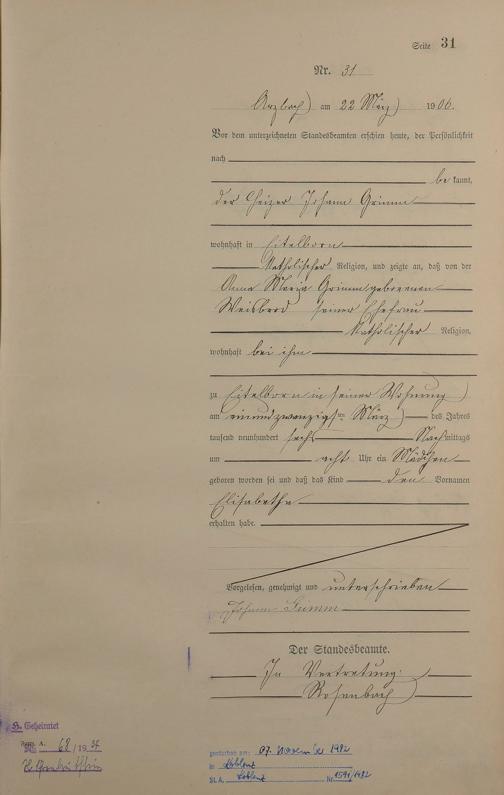 Seite 31
Nr. 31
Arzbach am 22 März 1906.
Vor dem unterzeichneten Standesbeamten erschien heute, der Persönlichkeit
nach
be kannt,
der Heizer Johann Grimm
wohnhaft in Eitelborn
katholischer Religion, und zeigte an, daß von der
Anna Maria Grimm geborenen
Weisbrod seiner Ehefrau
katholischer Religion,
wohnhaft bei ihm
zu Eitelborn in seiner Wohnung
am einundzwanzigsten März des Jahres
tausend neunhundert sechs Nachmittags
um acht Uhr ein Mädchen
geboren worden sei und daß das Kind den Vornamen
Elisabetha
erhalten habe.
Vorgelesen, genehmigt und unterschrieben
Johann Grimm
Der Standesbeamte.
In Vertretung:
Rosenbach
Geheiratet
Nr. 68/1937
gestorben am: 07. November 1982
in Koblenz
St. A. Koblenz Nr. 1591/1982